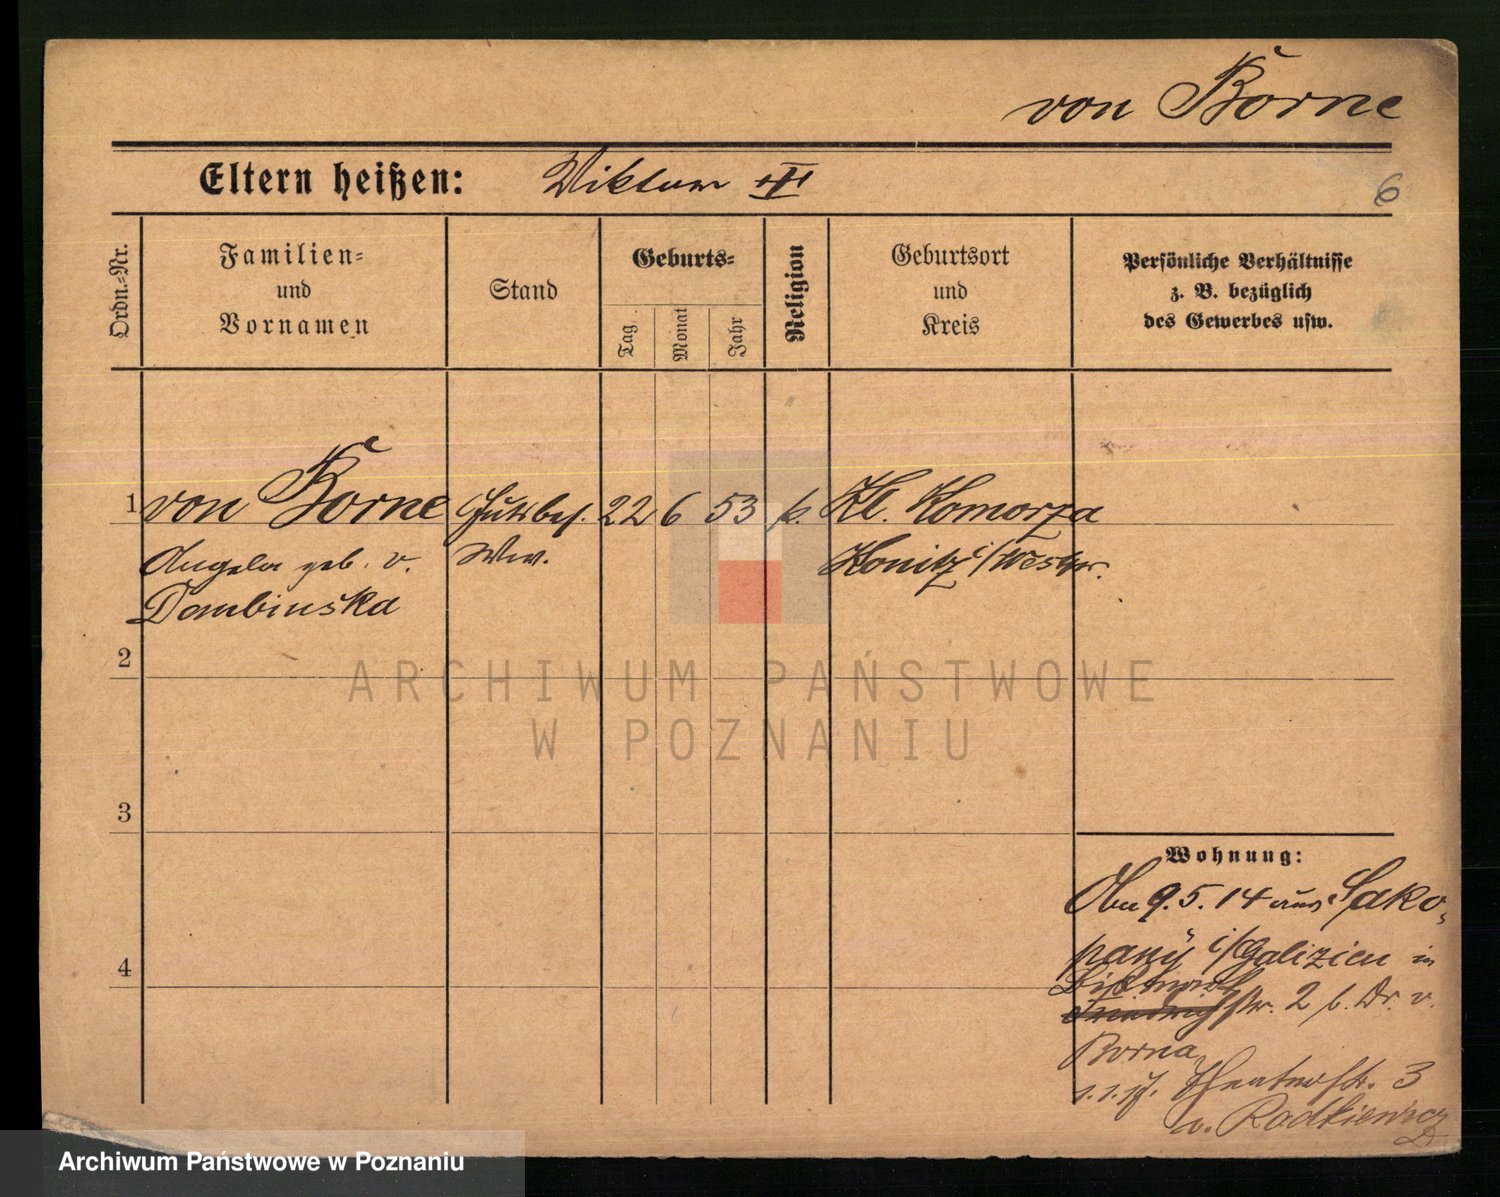 von Borne
Eltern heißen: Viktor
6
Ordn.-Nr.
Familien-
und
Vornamen
Stand
Geburts-
Tag
Monat
Jahr
Religion
Geburtsort
und
Kreis
Persönliche Verhältnisse
z. B. bezüglich
des Gewerbes usw.
1 von Borne Gutsbes. 22 6 53 k. Kl. Komorza
Angela geb. v. Ww. Konitz i/Westpr.
Dombinska
2
ARCHIWUM PAŃSTWOWE
W POZNANIU
3
4
Wohnung:
9.5.14 aus Sako-
pany i/Galizien in
Bismarck
Friedrichstr. 2 b. Dr. v.
Borne
Theaterstr. 3
v. Radkiewicz
Archiwum Państwowe w Poznaniu